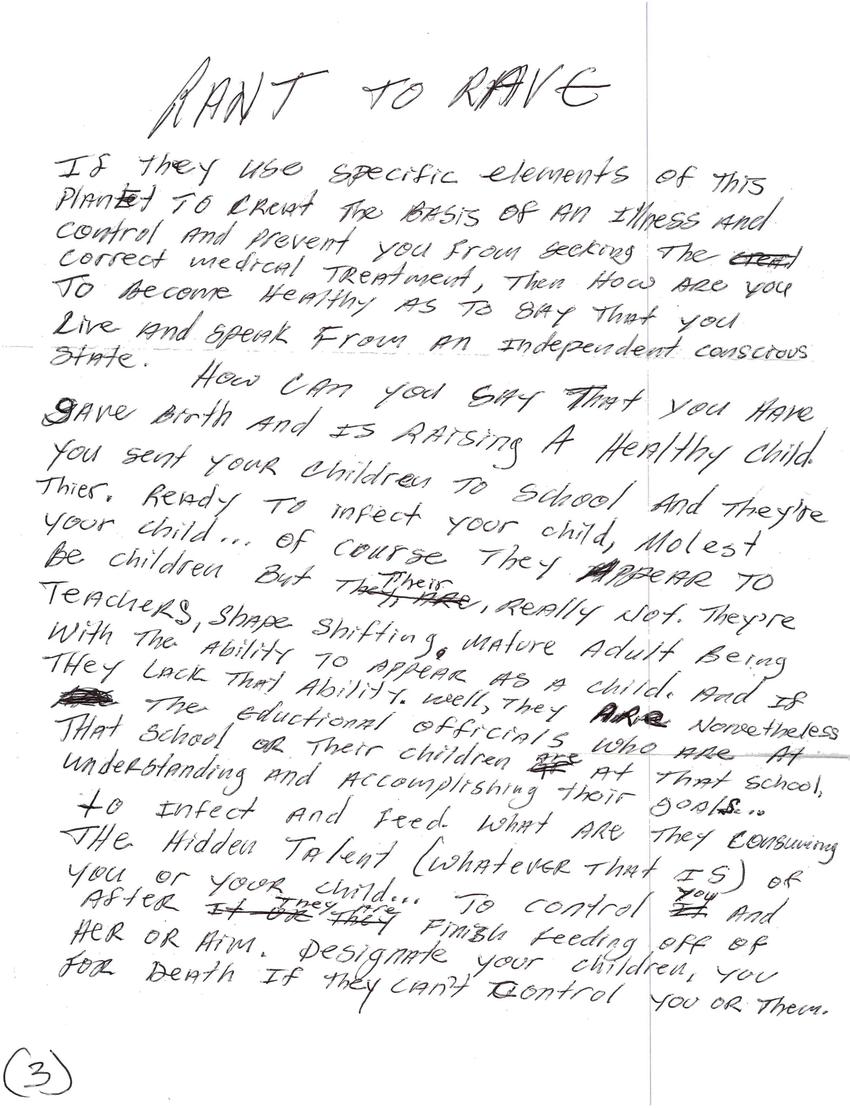 RANT TO RAVE
If they use specific elements of this
planet to creat the basis of an illness and
control and prevent you from seeking the
correct medical treatment, then how are you
to become healthy as to say that you
live and speak from an independent conscious
state.
How can you say that you have
gave birth and is raising a healthy child.
You sent your children to school and they're
thier. Ready to infect your child, molest
your child... of course they appear to
be children but their, really not. They're
teachers, shape shifting, mature adult being
with the ability to appear as a child. And if
they lack that ability. Well, they are nonetheless
the eductional officials who are at
that school or their children are at that school,
understanding and accomplishing their goals...
to infect and feed. What are they consuming
the hidden talent (whatever that is) of
you or your child... to control you and
after they are finish feeding off of
her or him. Designate your children, you
for death if they can't control you or them.
(3)